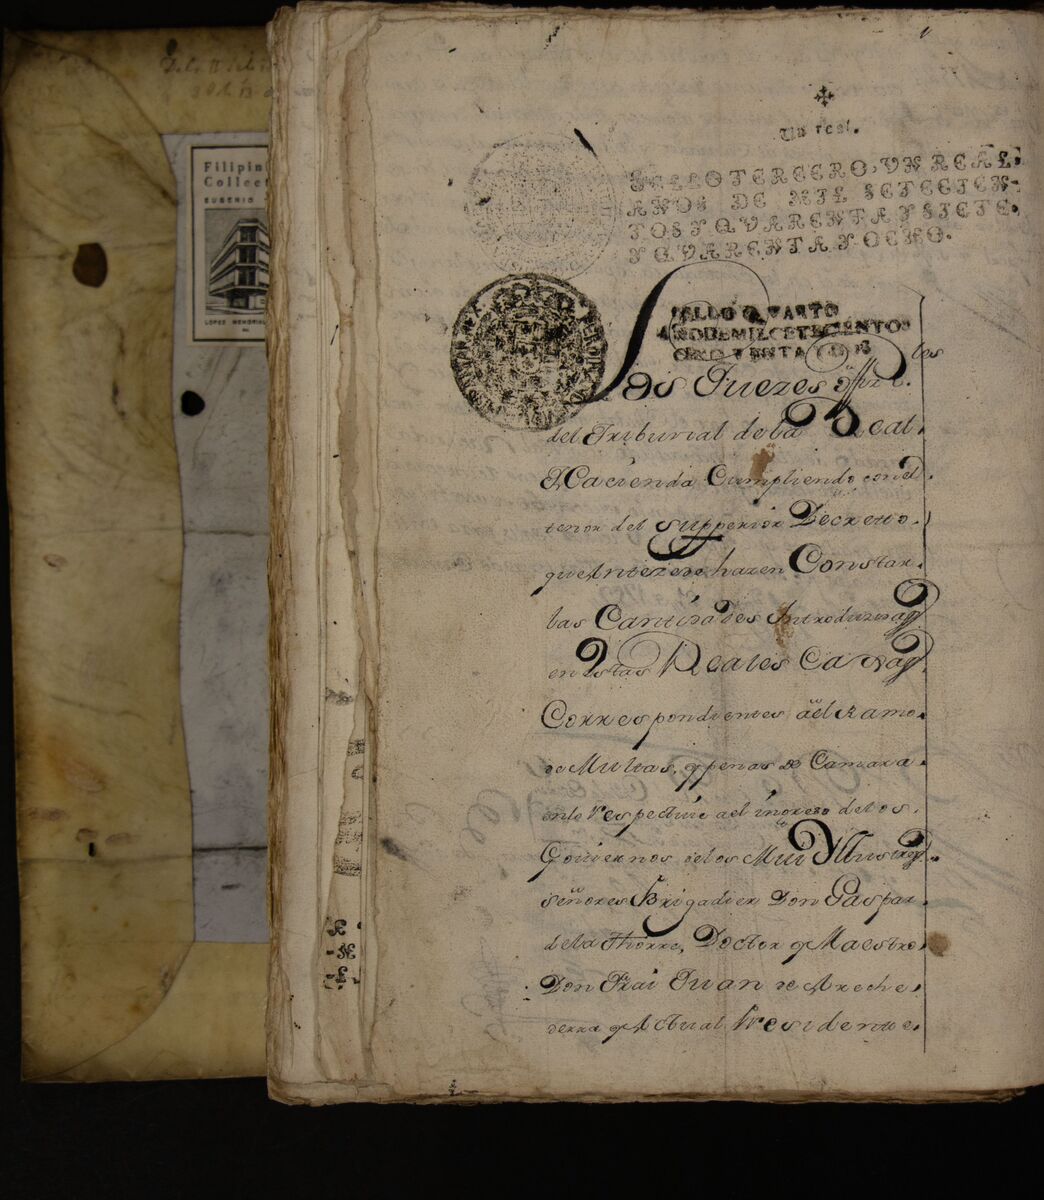 Filipin
Collect
EUGENIO
LOPEZ MEMORIAL
Un real.
SELLO TERCERO, VN REAL.
AÑOS DE MIL SETECIEN-
TOS Y QVARENTA Y SIETE.
Y QVARENTA Y OCHO.
SELLO QVARTO
AÑODEMILCETECIENTOS
CINQVENTA
Los Juezes offiz.les
del Tribunal dela Real
Hacienda Cumpliendo conel
tenor del Supperior Decretto
que Antezede hazen Constar
las Cantidades Introduzidas
en Estas Reales Caxas
Correspondientes ael Ramo
de Multas, y penas de Camara
enlo respectiuo ael ingreso delos
Gouiernos delos Mui Illustres
señores Brigadier Don Gaspar
dela Thorre, Doctor y Maestro
Don Frai Juan de Areche
derra y Actual Presidente